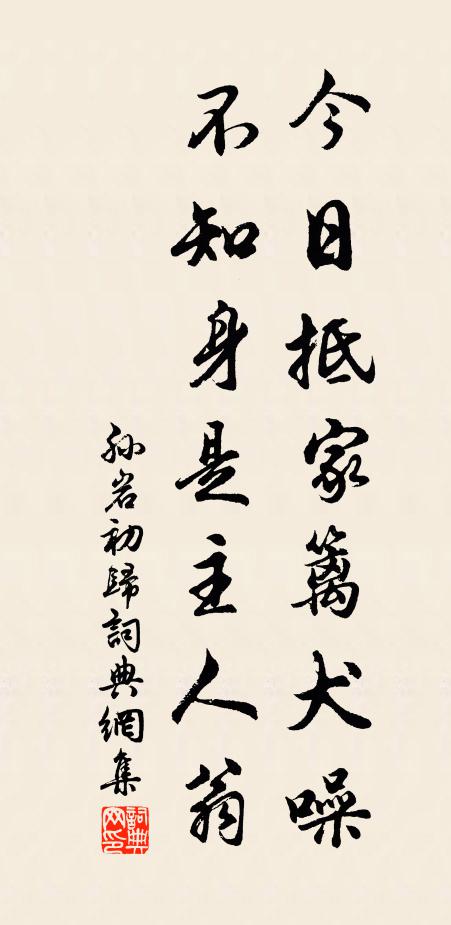 今日抵家篱犬噪
不知身是主人翁
孙岩初歸詞典網集
詞典网印